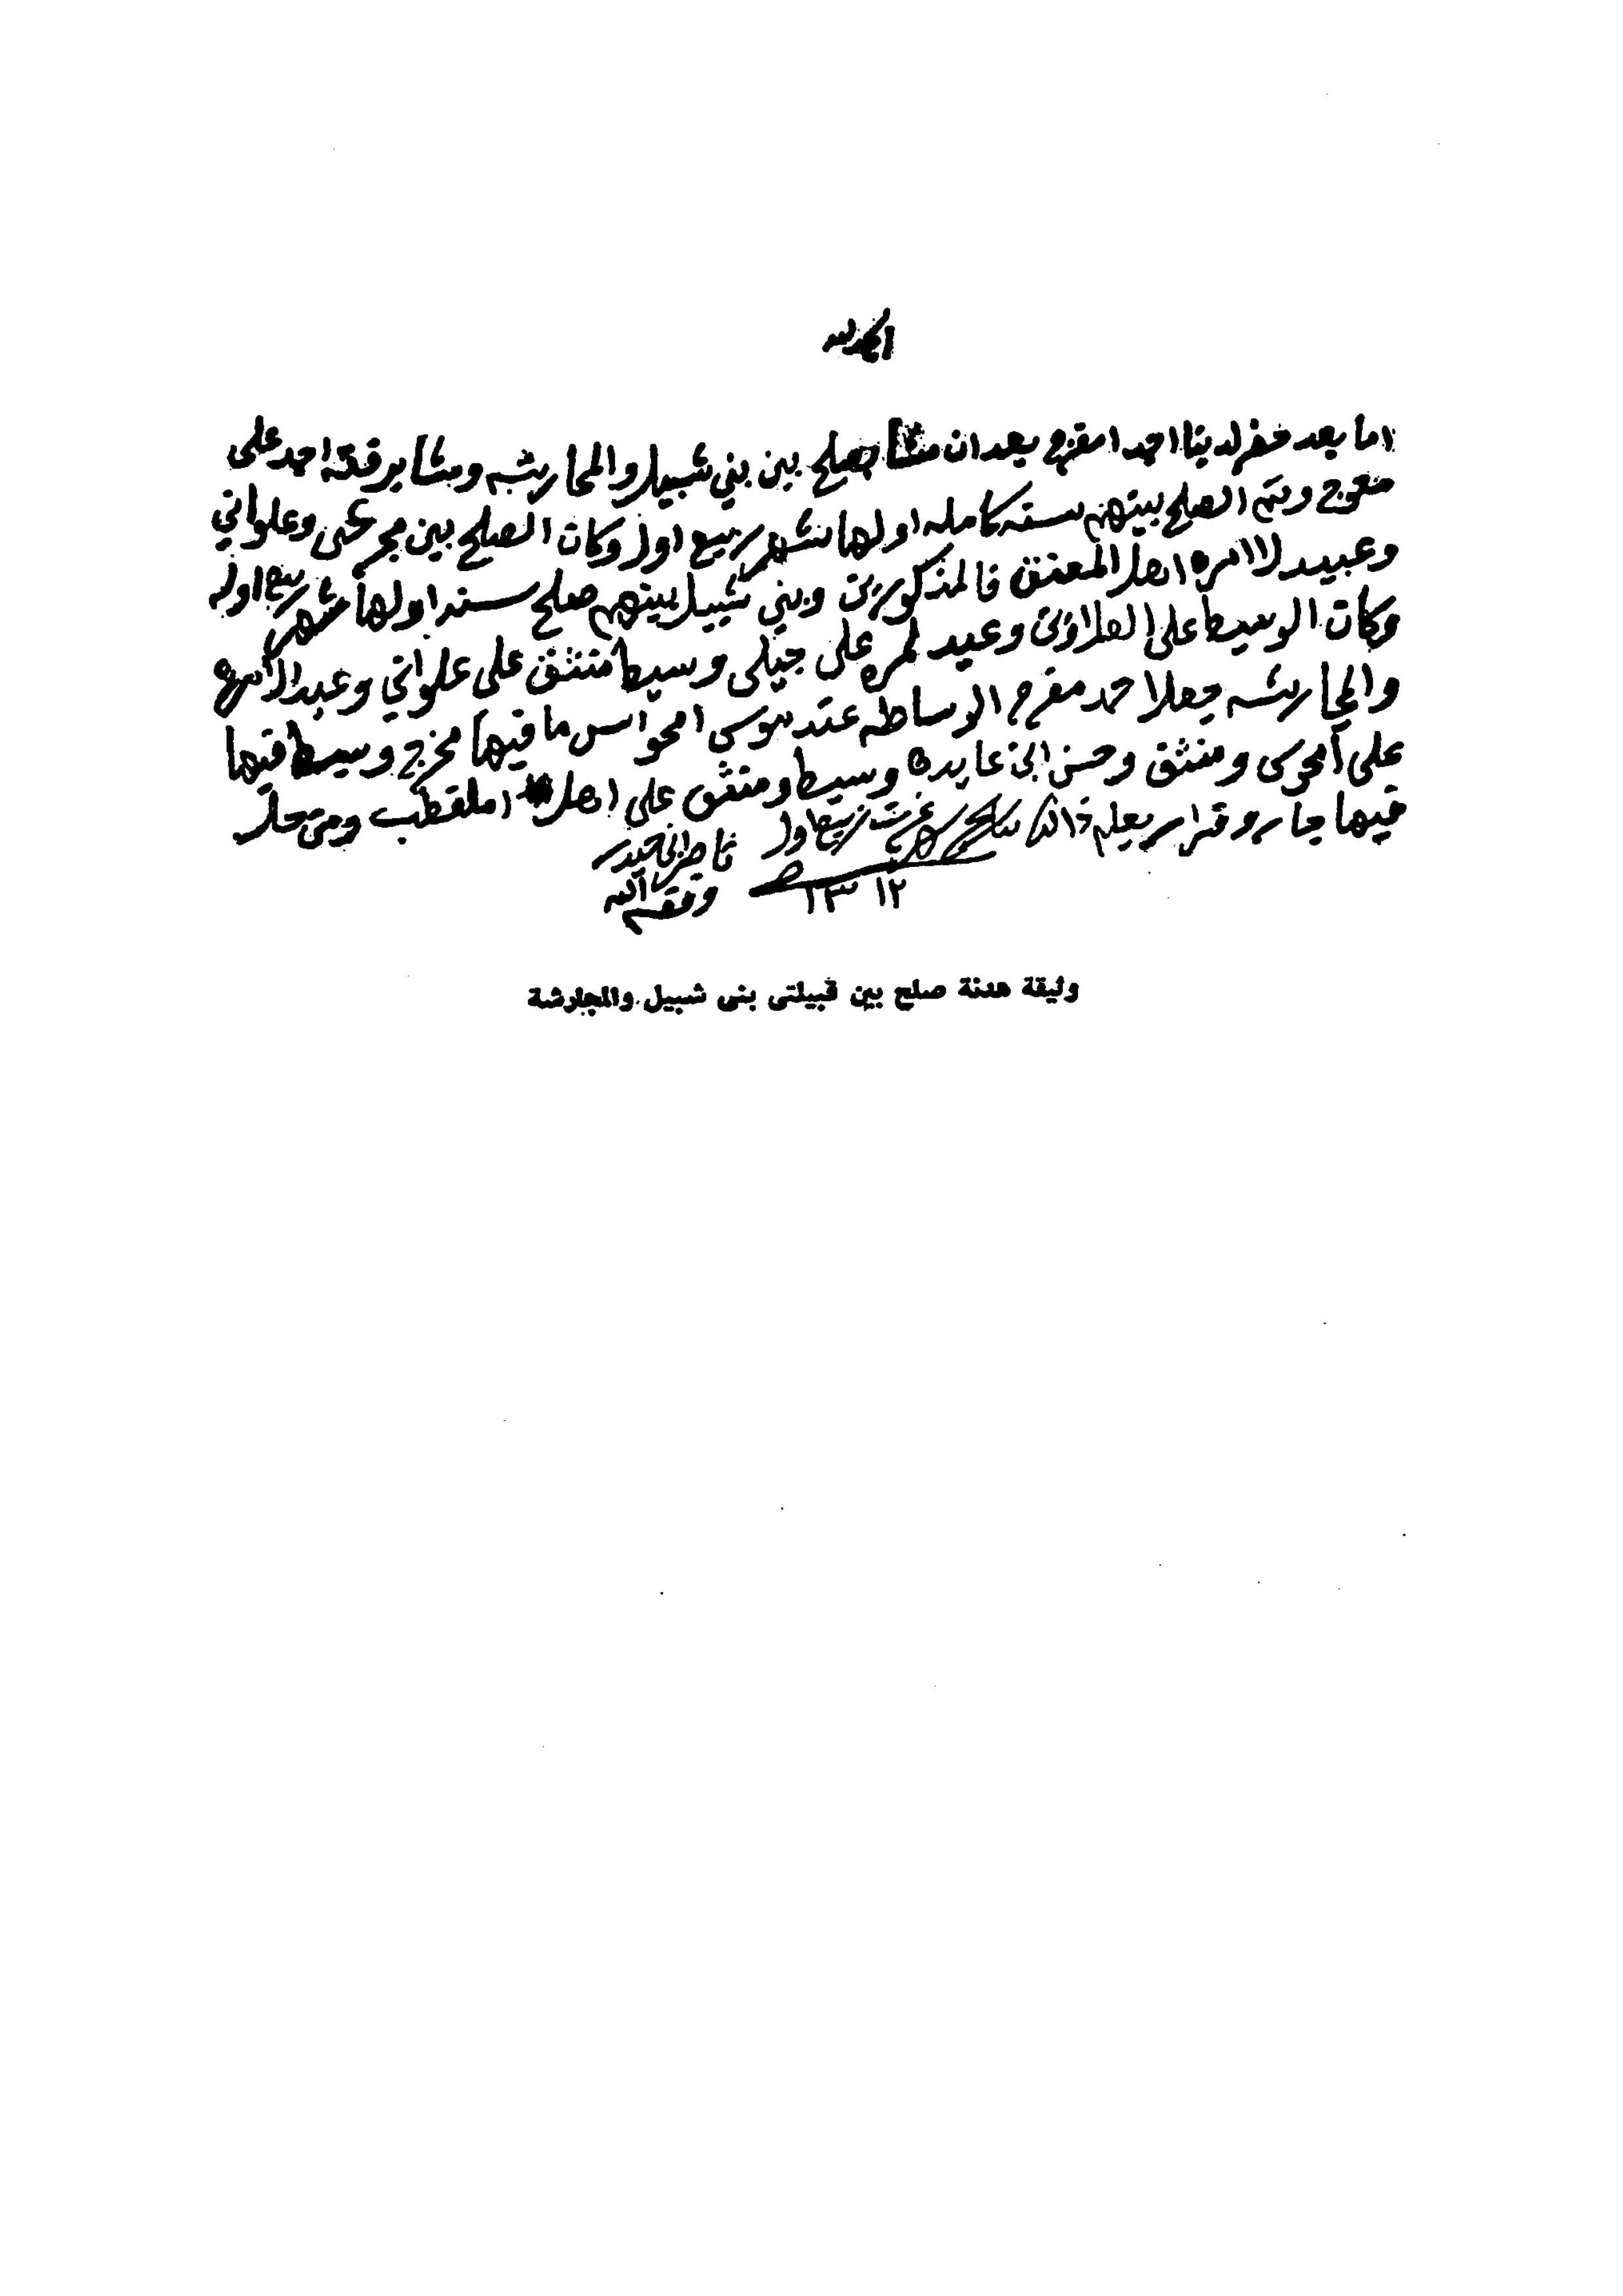 الحمد لله
اما بعد حضر لدينا احمد امفرح بعد ان مشا صلح بين بني شبيل والمجارشه ومشا برقمة احمد على
معوج وتم الصلح بينهم سنه كامله اولها شهر ربيع اول وكان الصلح بين مجرشى وعلواني
وعبيد لا امره اهل المعنق فالمذكورين وبني شبيل بينهم صلح سنه اولها شهر ربيع اول
وكان الوسيط على العلاونى وعبد لمره على جيلى وسيط منثق على علواني وعبد الامره
والمجارشه جعلا حمد مفرح الوساطه عند موسى امحواس ما فيها مخرج وسيط فيها
على امجرشى ومنثق وحسن ابن عايده وسيط ومنثق على اهل املقطب ومن حل
فيها جار وقرار يعلم ذالك ربيع اول
١٣١٢
ناصر حيدر
وفقه الله
وثيقة هدنة صلح بين قبيلتى بنى شبيل والمجارشة